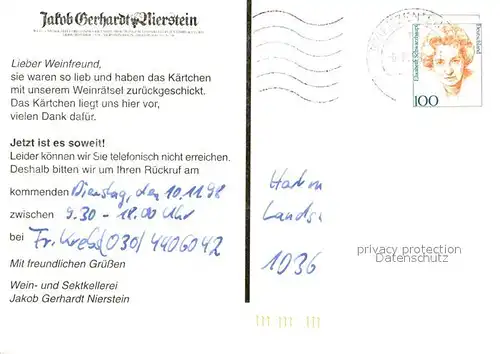 Jakob Gerhardt Nierstein
Lieber Weinfreund,
sie waren so lieb und haben das Kärtchen
mit unserem Weinrätsel zurückgeschickt.
Das Kärtchen liegt uns hier vor,
vielen Dank dafür.
Jetzt ist es soweit!
Leider können wir Sie telefonisch nicht erreichen.
Deshalb bitten wir um Ihren Rückruf am
kommenden Dienstag, den 10.11.98
zwischen 9.30 - 18.00 Uhr
bei Fr. Krebs (030) 4406042
Mit freundlichen Grüßen
Wein- und Sektkellerei
Jakob Gerhardt Nierstein
Deutschland
Elisabeth Schwarzhaupt
100
1036
privacy protection
Datenschutz